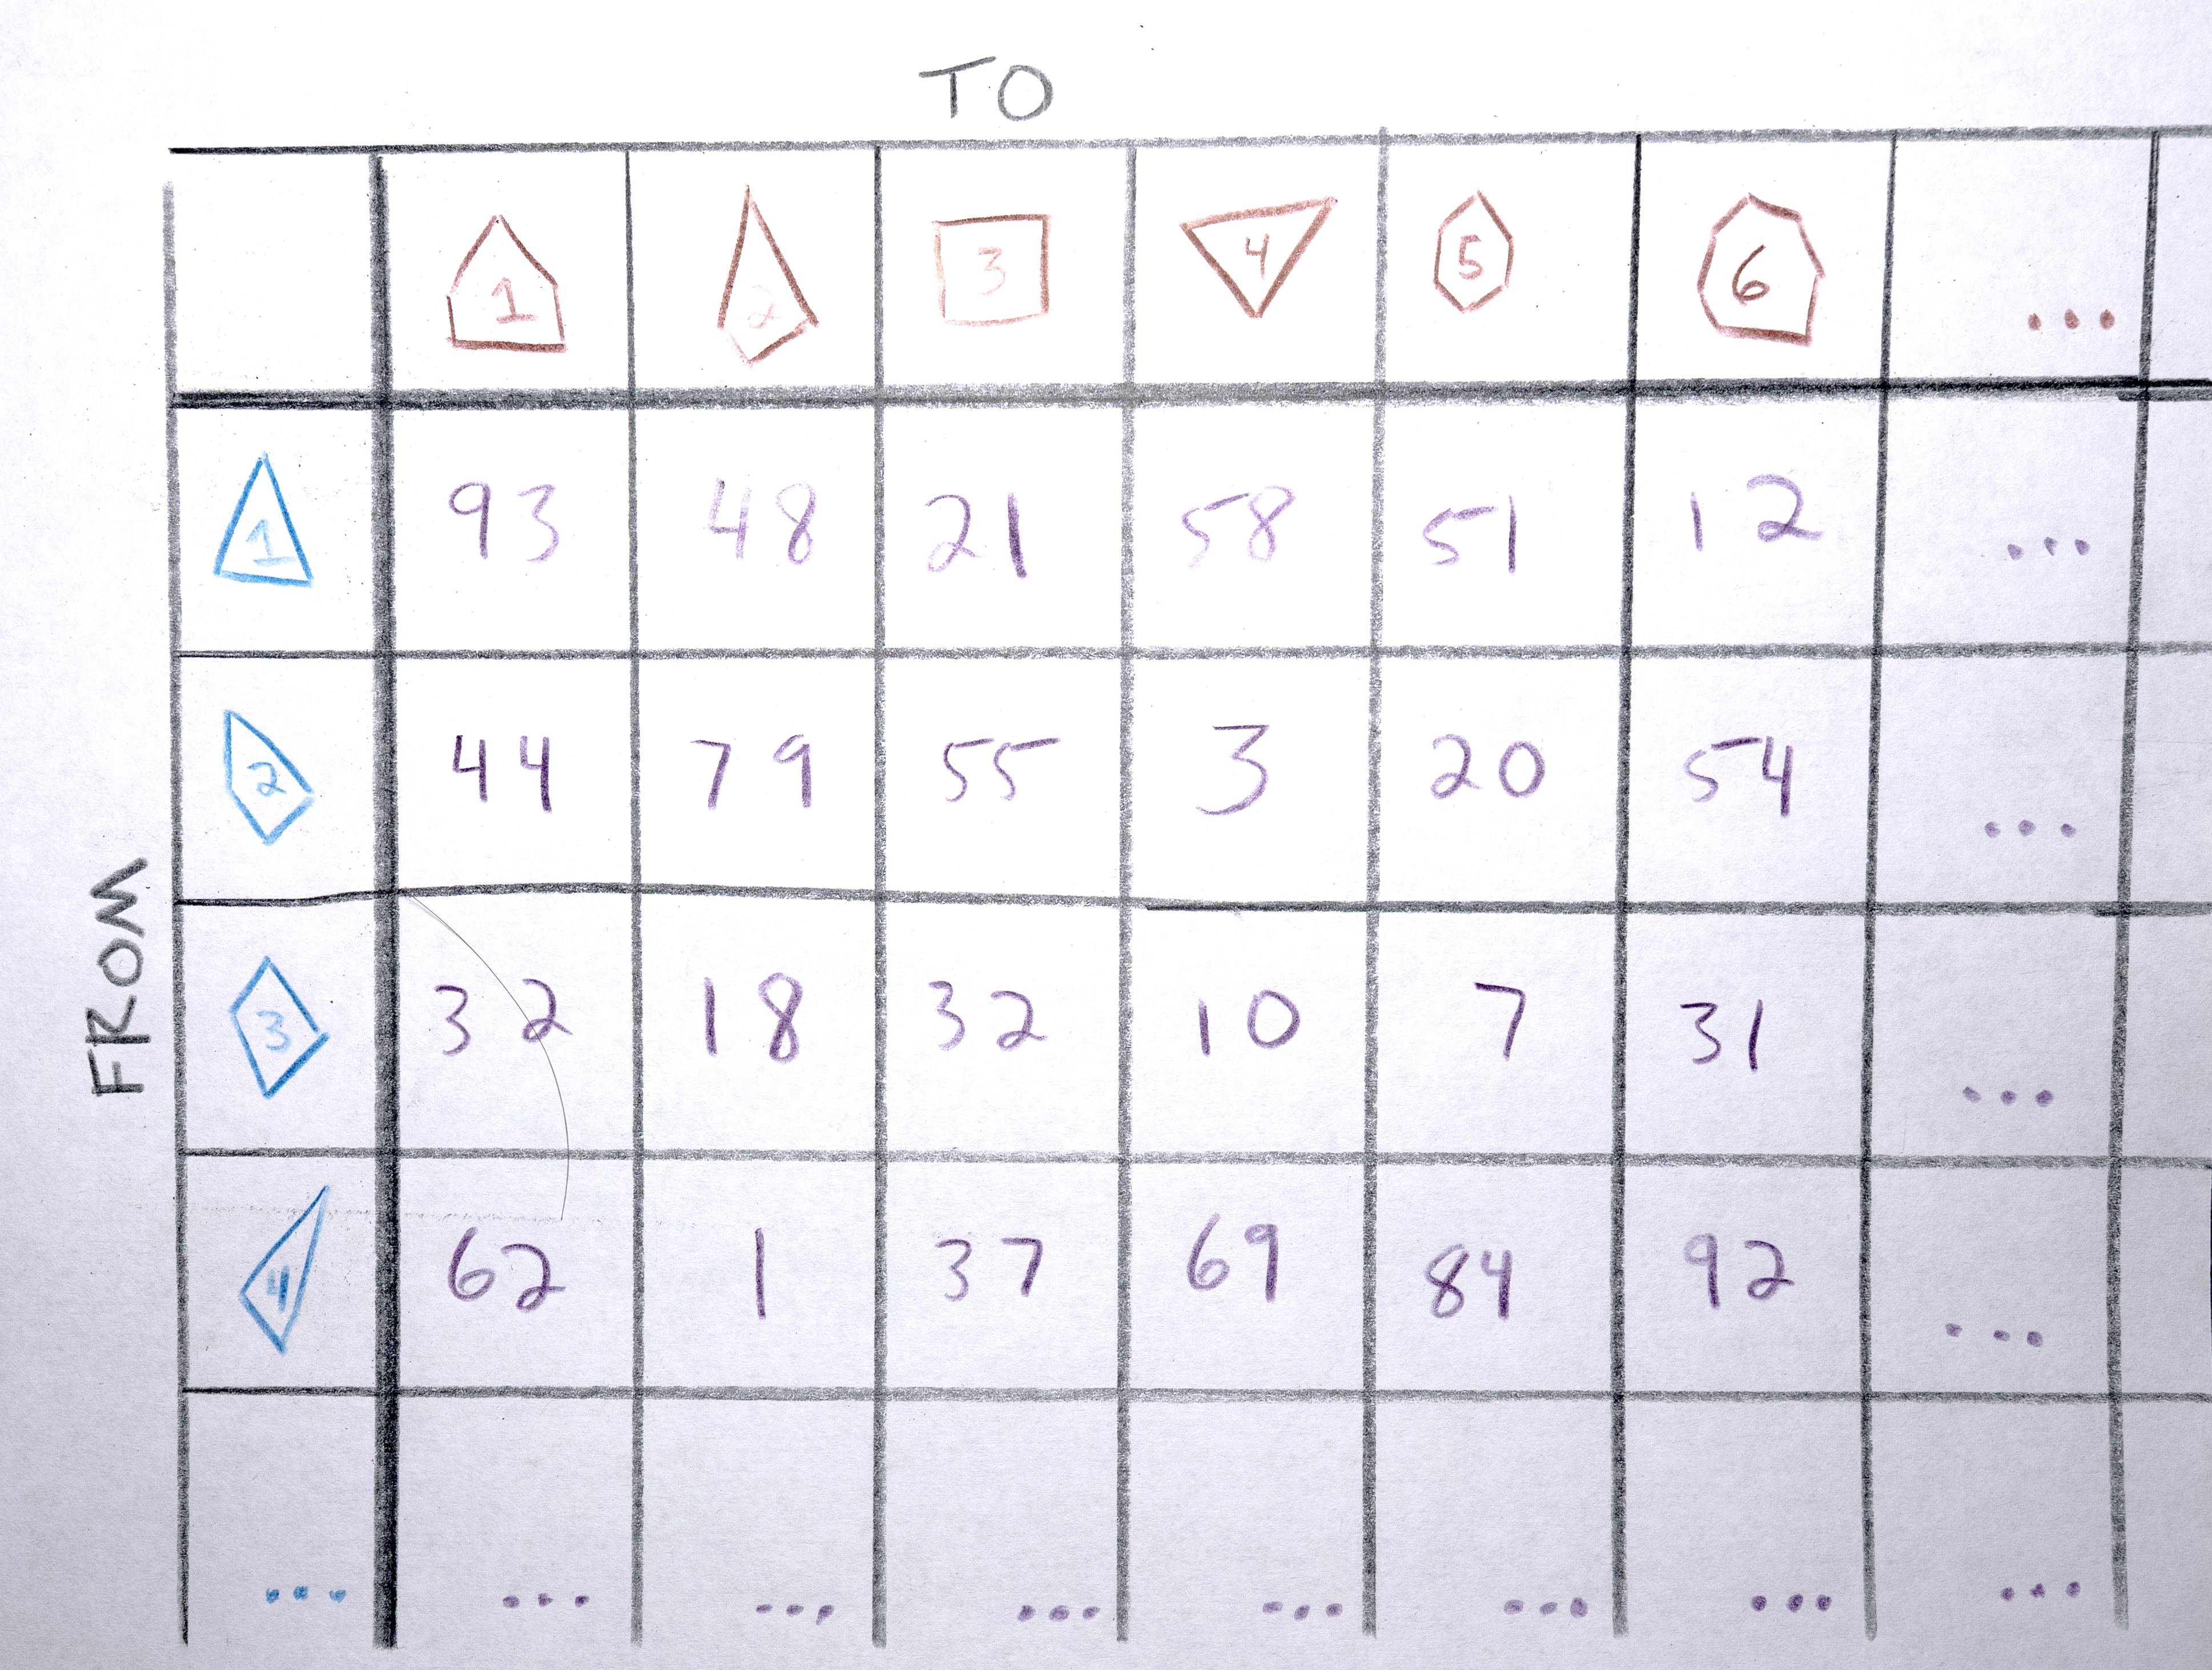 TO
1 2 3 4 5 6 ...
1 93 48 21 58 51 12 ...
2 44 79 55 3 20 54 ...
3 32 18 32 10 7 31 ...
4 62 1 37 69 84 92 ...
... ... ... ... ... ... ... ...
FROM